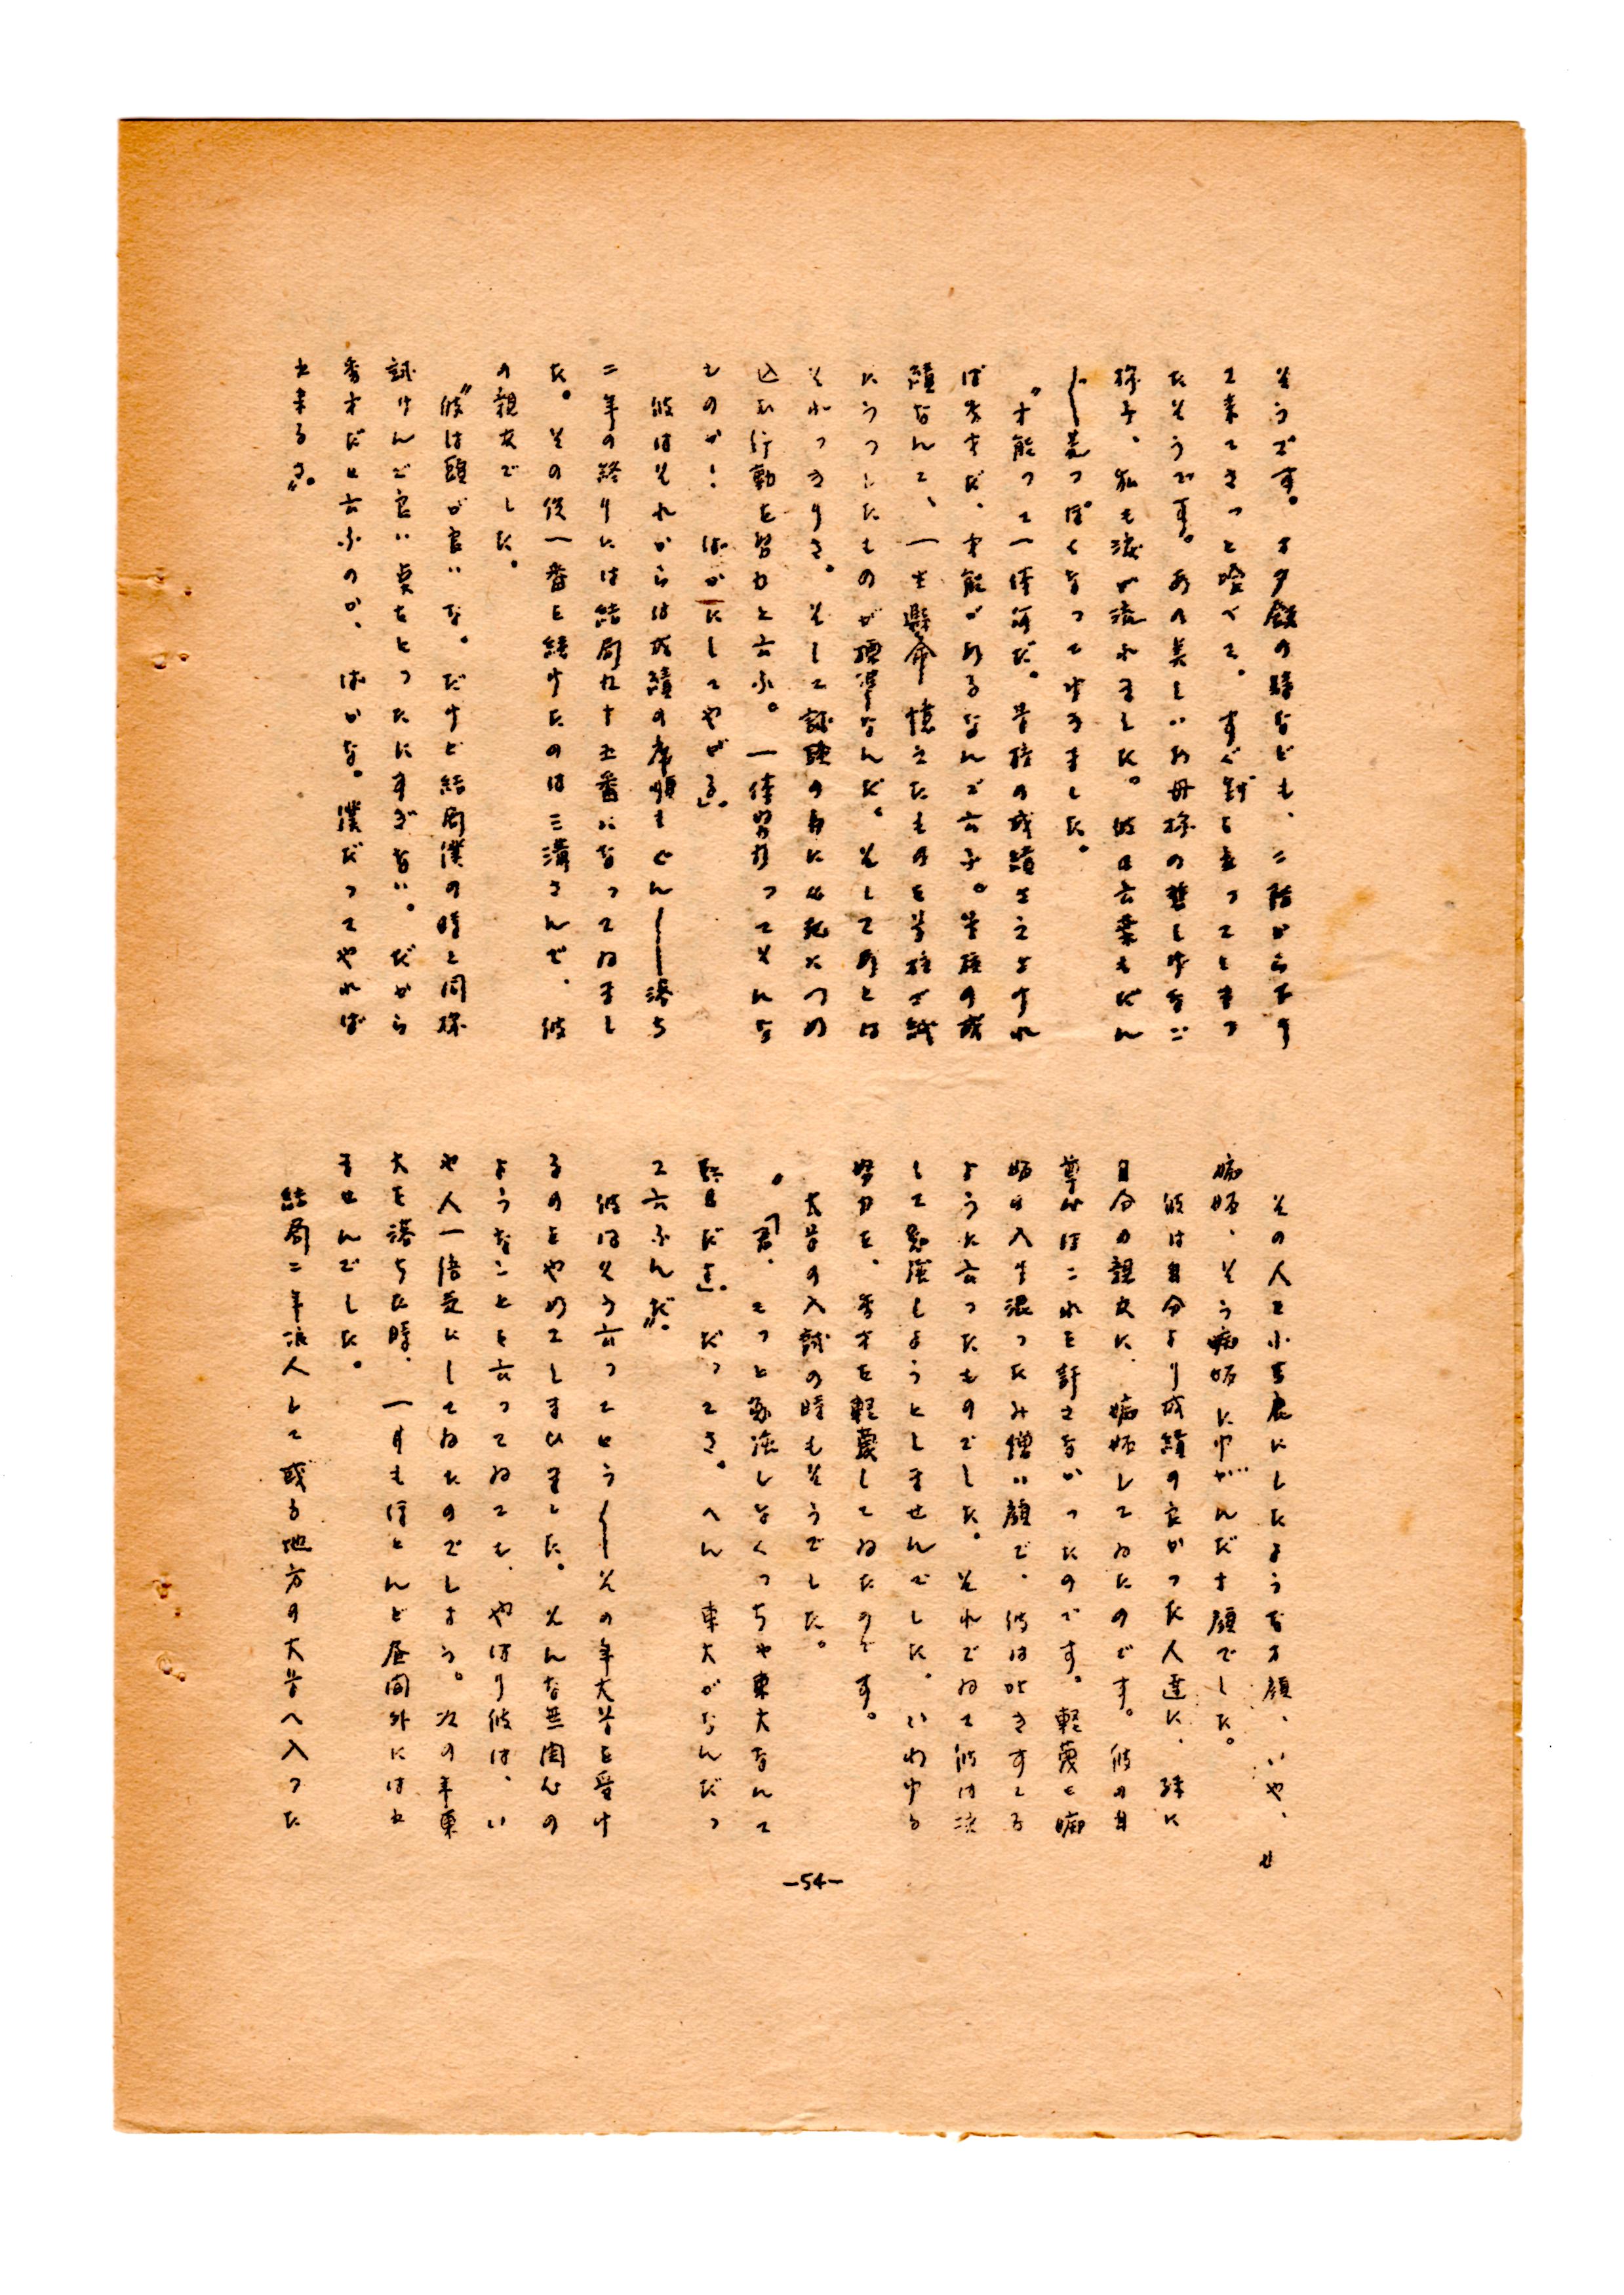 そうです。オ夕飯の時なども、二階から下り
て来てさっと喰べて。すぐ針を立ってしまつ
たそうです。あの美しいお母様の悲しげなご
様子、私も涙が流れました。彼は言葉もだん
〱荒つぽくなってゆきました。
〝才能って一体何だ。学校の成績さえよけれ
ば秀才だ、才能があるなんで云ふ。学校の成
績なんて、一生懸命憶えたものを学校で紙
にうつしたものが標準なんだ。そしてあとは
それつきりさ。そして試験の為に必死につめ
込む行動を努力と云ふ。一体努力ってそんな
ものか！ばかにしてやがる〟。
彼はそれからは成績の席順もぐん〱落ち
二年の終りには結局九十五番になってゐまし
た。その後一番を続けたのは三溝さんで、彼
の親友でした。
〝彼は頭が良いな。だけど結局僕の時と同様
試けんで良い点をとつたにすぎない。だから
秀才だと云ふのか、ばかな。僕だってやれば
出来るさ〟。
その人を小馬鹿にしたようなオ顔、いや、
嫉妬、そう嫉妬にゆがんだオ顔でした。せ
彼は自分より成績の良かつた人達に、殊に
自分の親友に、嫉妬してゐたのです。彼の自
尊心はこれを許さなかつたのです。軽蔑と嫉
妬の入り混つたみ憎い顔で、彼は吐きすてる
ように云つたものでした。それでゐて彼は決
して勉強しようとしませんでした。いわゆる
努力を、秀才を軽蔑してゐたのです。
大学の入試の時もそうでした。
〝「君、もつと勉強しなくつちや東大なんて
駄目だよ」。だつてさ。へん東大がなんだつ
て云ふんだ〟。
彼はそう云つてとう〱その年大学を受け
るのをやめてしまひました。そんな無関心の
ようなことを云つてゐても、やはり彼は、い
や人一倍気にしてゐたのでしょう。次の年東
大を落ちた時、一ヶ月もほとんど昼間外には出
ませんでした。
結局二年浪人して或る地方の大学へ入つた
—54—